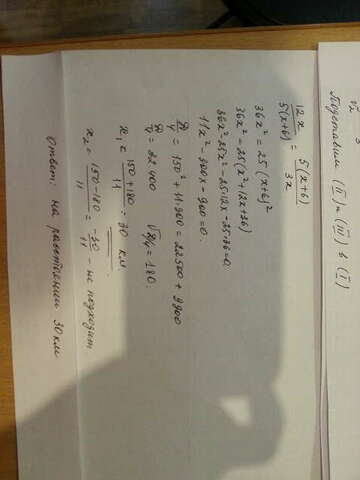 Подставим (II) и (III) в (I)
12x / 5(x+6) = 5(x+6) / 3x
36x² = 25(x+6)²
36x² - 25(x²+12x+36)
36x² - 25x² - 25·12x - 25·36 = 0
11x² - 300x - 900 = 0.
D/4 = 150² + 11·900 = 22500 + 9900
D/4 = 32400 √D/4 = 180.
x₁ = 150+180 / 11 = 30 км
x₂ = 150-180 / 11 = -30 / 11 - не подходит
Ответ: на расстоянии 30 км